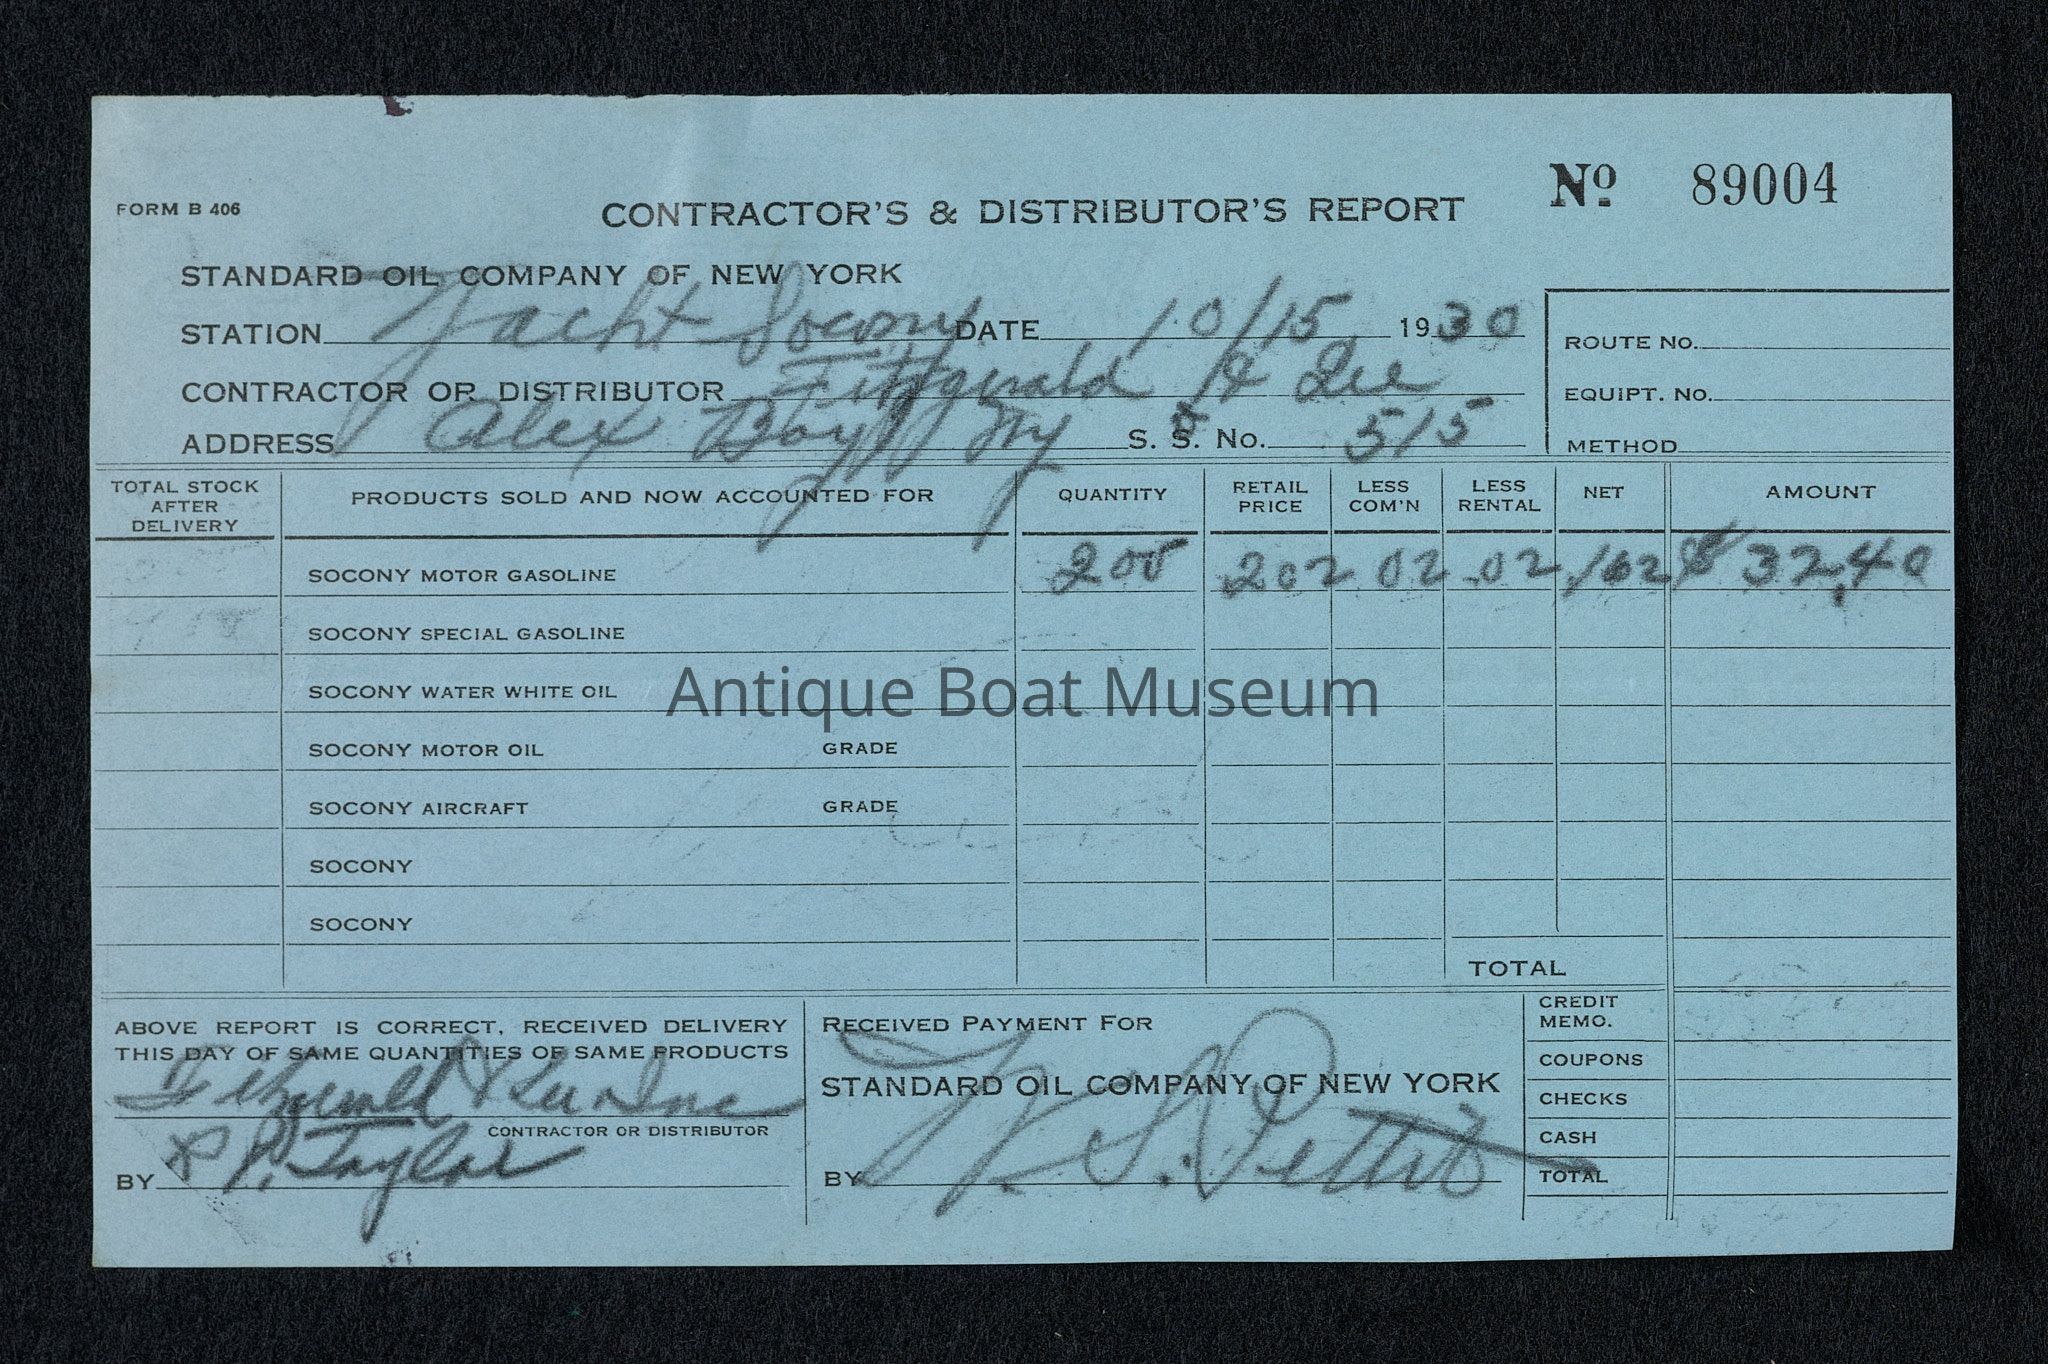 FORM B 406
CONTRACTOR'S & DISTRIBUTOR'S REPORT
No 89004
STANDARD OIL COMPANY OF NEW YORK
STATION Yacht Socony DATE 10/15 1930
CONTRACTOR OR DISTRIBUTOR Fitzgerald & Lee
ADDRESS Alex Bay NY S. S. No. 515
ROUTE No.
EQUIPT. No.
METHOD
TOTAL STOCK AFTER DELIVERY PRODUCTS SOLD AND NOW ACCOUNTED FOR QUANTITY RETAIL PRICE LESS COM'N LESS RENTAL NET AMOUNT
SOCONY MOTOR GASOLINE 200 .202 02 .02 .162 $ 32.40
SOCONY SPECIAL GASOLINE
SOCONY WATER WHITE OIL
Antique Boat Museum
SOCONY MOTOR OIL GRADE
SOCONY AIRCRAFT GRADE
SOCONY
SOCONY
TOTAL
ABOVE REPORT IS CORRECT, RECEIVED DELIVERY
THIS DAY OF SAME QUANTITIES OF SAME PRODUCTS
Fitzgerald & Lee Inc
CONTRACTOR OR DISTRIBUTOR
BY Taylor
RECEIVED PAYMENT FOR
STANDARD OIL COMPANY OF NEW YORK
BY W. S. Pettit
CREDIT MEMO.
COUPONS
CHECKS
CASH
TOTAL